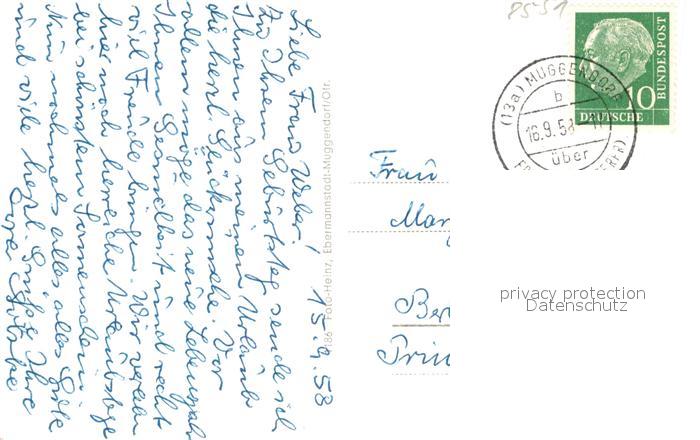 15.9.58
Liebe Frau Weber!
Zu Ihrem Geburtstag sende ich
Ihnen aus meinem Urlaub
die herzl. Glückwünsche. Vor
allem möge das neue Lebensjahr
Ihnen Gesundheit und recht
viel Freude bringen. Wir verleben
hier noch herrliche Urlaubstage
bei schönstem Sonnenschein.
Nun nochmals alles, alles Gute
und viele herzl. Grüße Ihre
186 Foto-Heinz, Ebermannstadt-Muggendorf/Ofr.
85-51
10
BUNDESPOST
DEUTSCHE
(13a) MUGGENDORF
b
16.9.58
über
Frau
Mar
Ber
Prin
privacy protection
Datenschutz